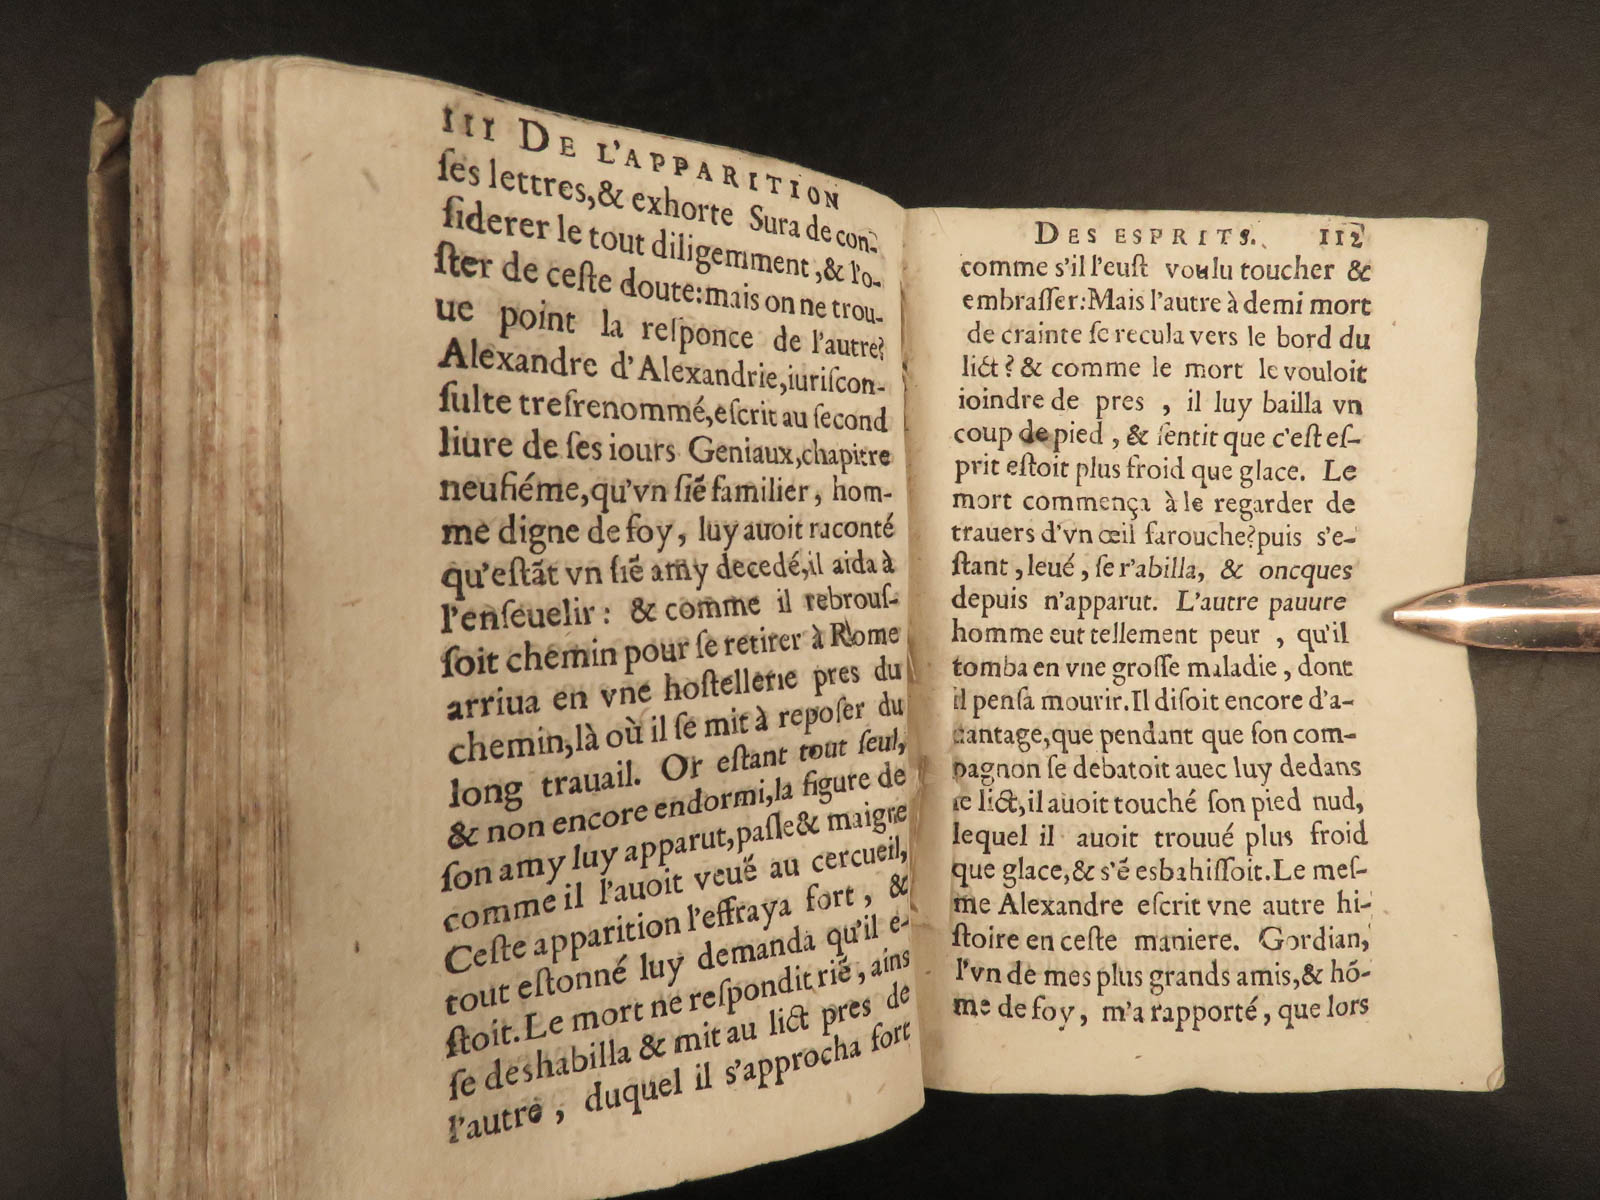 III DE L'APPARITION
ſes lettres,& exhorte Sura de con-
ſiderer le tout diligemment,& l'o-
ſter de ceſte doute:mais on ne trou-
ue point la reſponce de l'autre?
Alexandre d'Alexandrie,iuriſcon-
ſulte treſrenommé,eſcrit au ſecond
liure de ſes iours Geniaux,chapitre
neufiéme,qu'vn ſiẽ familier, hom-
me digne de foy, luy auoit raconté
qu'eſtãt vn ſiẽ amy decedé,il aida à
l'enſeuelir: & comme il rebrouſ-
ſoit chemin pour ſe retirer à Rome
arriua en vne hoſtellerie pres du
chemin,là où il ſe mit à repoſer du
long trauail. Or eſtant tout ſeul,
& non encore endormi,la figure de
ſon amy luy apparut,paſle & maigre
comme il l'auoit veuë au cercueil,
Ceſte apparition l'effraya fort, &
tout eſtonné luy demanda qu'il e-
ſtoit.Le mort ne reſpondit riẽ, ains
ſe deshabilla & mit au lict pres de
l'autre, duquel il s'approcha fort
DES ESPRITS. 112
comme s'il l'euſt voulu toucher &
embraſſer:Mais l'autre à demi mort
de crainte ſe recula vers le bord du
lict? & comme le mort le vouloit
ioindre de pres, il luy bailla vn
coup de pied, & ſentit que c'eſt eſ-
prit eſtoit plus froid que glace. Le
mort commença à le regarder de
trauers d'vn œil farouche?puis s'e-
ſtant, leué, ſe r'abilla, & oncques
depuis n'apparut. L'autre pauure
homme eut tellement peur, qu'il
tomba en vne groſſe maladie, dont
il penſa mourir.Il diſoit encore d'a-
uantage,que pendant que ſon com-
pagnon ſe debatoit auec luy dedans
le lict,il auoit touché ſon pied nud,
lequel il auoit trouué plus froid
que glace,& s'ẽ esbahiſſoit.Le meſ-
me Alexandre eſcrit vne autre hi-
ſtoire en ceſte maniere. Gordian,
l'vn de mes plus grands amis,& hõ-
me de foy, m'a rapporté, que lors